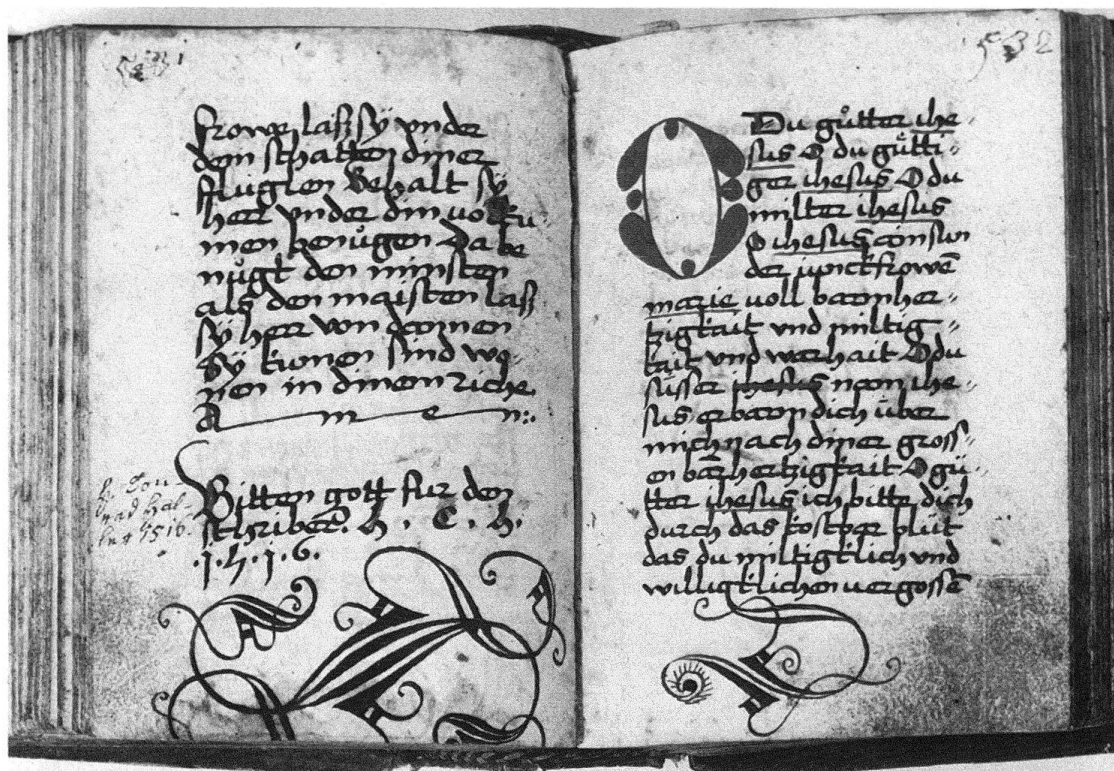 frowen laß sÿ vnder
dem schatten diner
flüglen Behalt sÿ
herr vnder din
men benügen Da be
nügt den minsten
als den maisten laß
sÿ herr von dannen
Sÿ kumen sind wo-
nen in dinem riche
A m e n:.
Bitten gott fur den
schriber. h. C. h.
.j.5.j.6.
h. Con
rad Hal-
1516.
532
O
Du gůtter ihe-
sus O du gůtti-
ger ihesus O du
milter ihesus
O ihesus ain sun
der junckfrowē
marie voll barmher-
tzigkait vnd miltig-
kait vnd warhait O du
süsser ihesus nach ihe-
sus erbarm dich über
mich nach diner gross-
en barmhertzigkait O gü-
tter ihesus ich bitte dich
durch das kostper plůt
das du miltigklich vnd
willigklichen vergossē